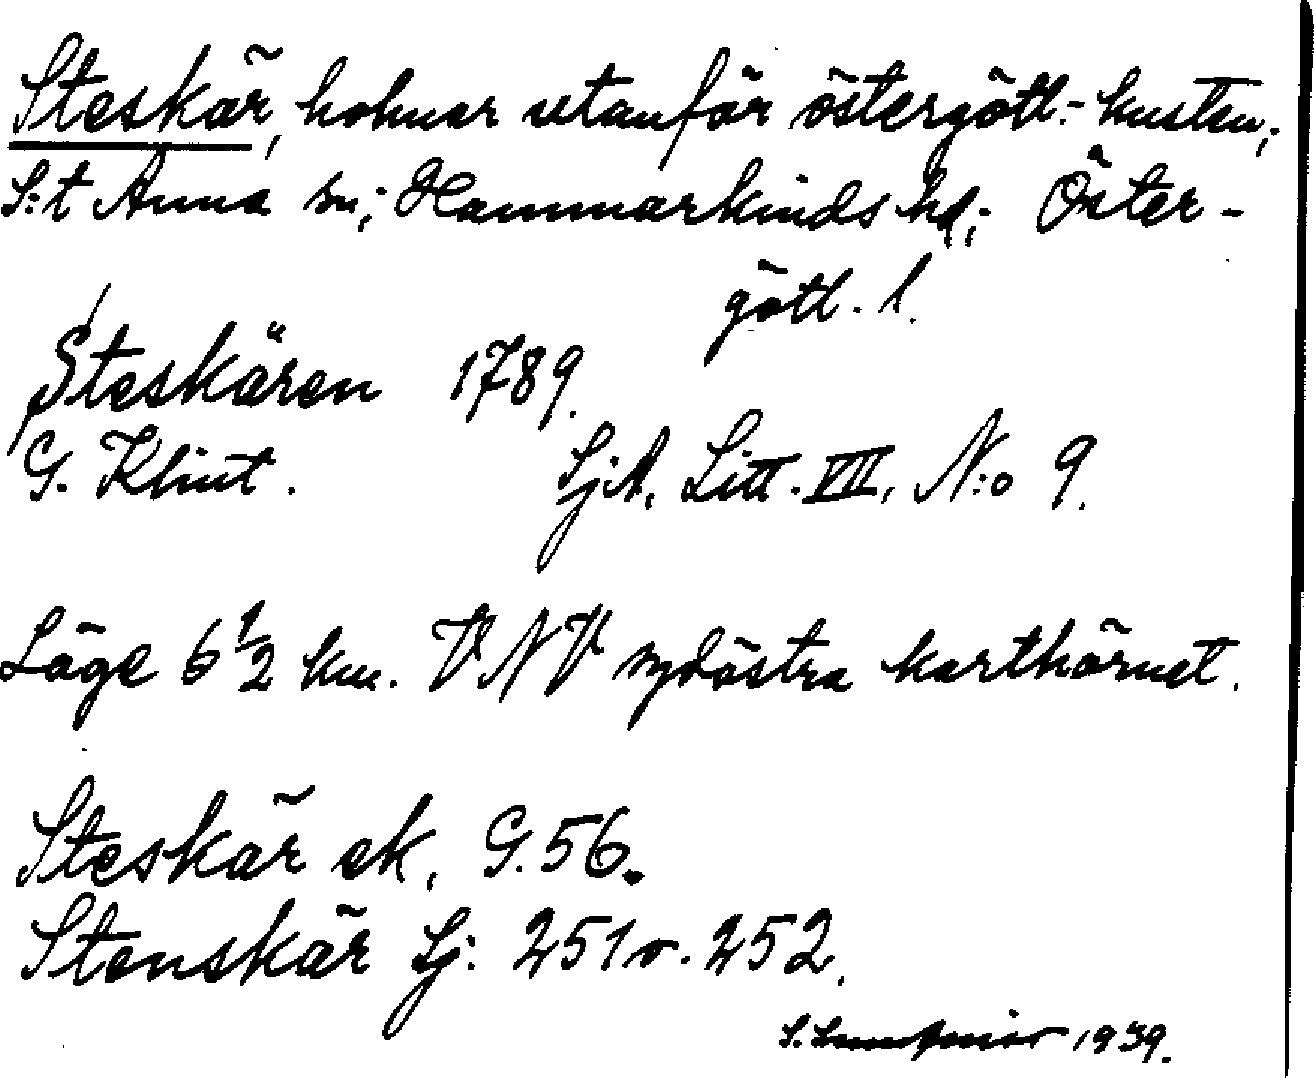 Steskär, holmar utanför östergötl.-kusten;
S:t Anna sn; Hammarkinds hd; Öster-
götl. l.
Steskären 1789.
G. Klint. SjA, Litt. VII, N:o 9.
Läge 6 1/2 km. VNV sydöstra karthörnet.
Steskär ek, G. 56.
Stenskär Sj: 251 o. 252.
S. 1939.